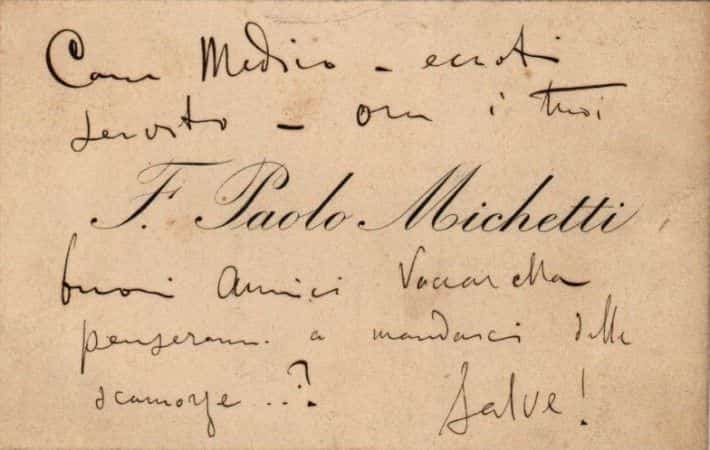 Caro Medico - eccoti
servito - ora i tuoi
F. Paolo Michetti
buoni Amici Vaccarella
penseranno a mandarci delle
scamorze ..?
Salve!